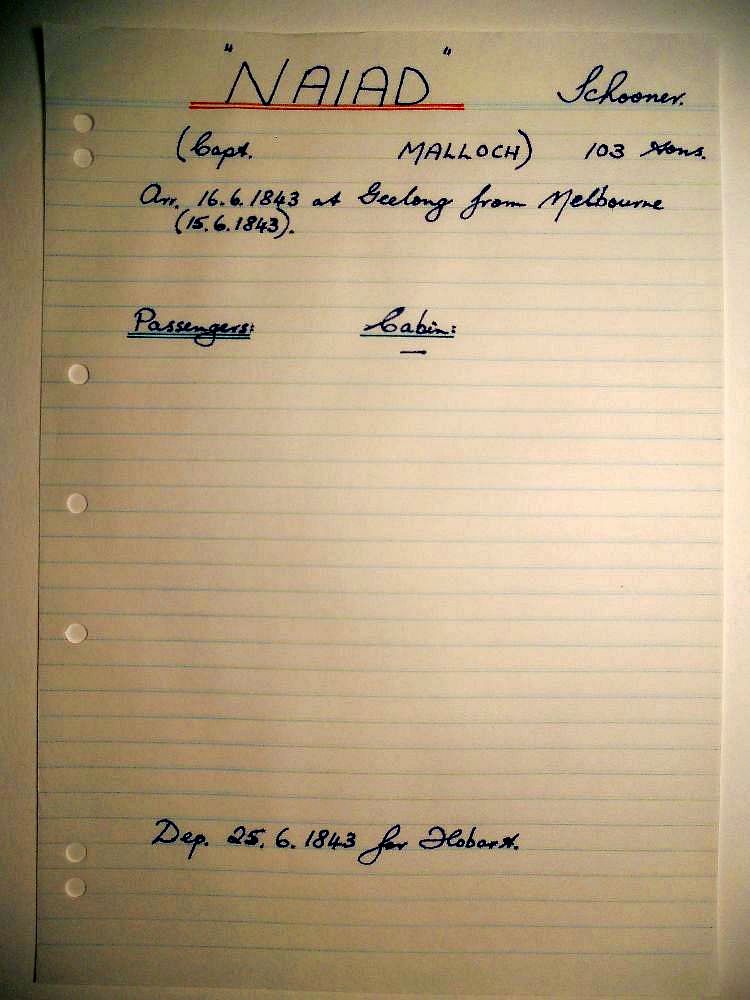 "NAIAD" Schooner.
(Capt. MALLOCH) 103 tons.
Arr. 16.6.1843 at Geelong from Melbourne
(15.6.1843).
Passengers: Cabin:
—
Dep. 25.6.1843 for Hobart.